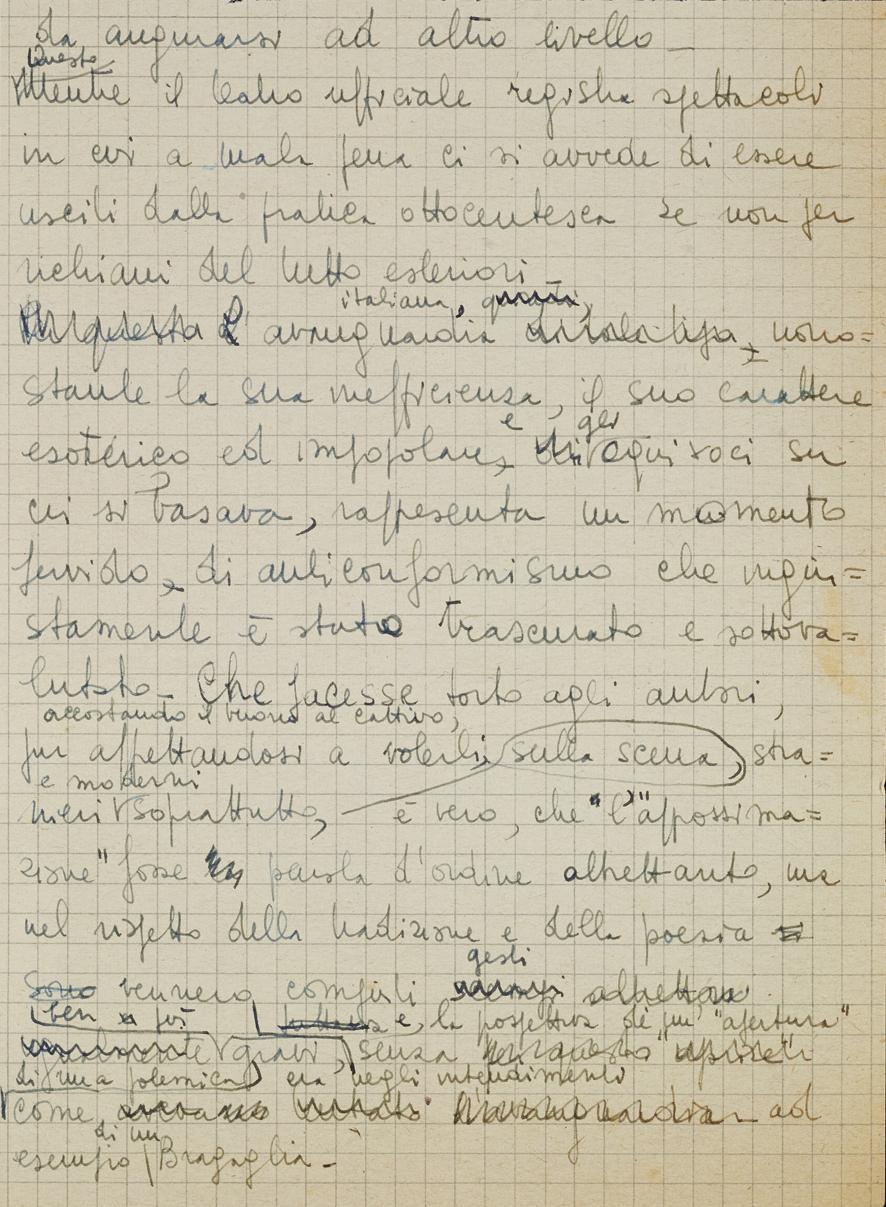 da augurarsi ad altro livello -
Questo
Mentre il teatro ufficiale registra spettacoli
in cui a mala pena ci si avvede di essere
usciti dalla pratica ottocentesca se non per
richiami del tutto esteriori -
italiana,
l'avanguardia nono=
stante la sua inefficienza, il suo carattere
e gli
esoterico ed impopolare, equivoci su
cui si basava, rappresenta un momento
fervido, di anticonformismo che ingiu=
stamente è stato trascurato e sottova=
lutato - Che facesse torto agli autori,
accostando il buono al cattivo,
pur affettandosi a volerli sulla scena, stra=
e moderni
nieri soprattutto, è vero, che "l'"approssima=
zione" fosse parola d'ordine altrettanto, ma
nel rispetto della tradizione e della poesia
gesti
Sono vennero compiuti
ben più e, la prospettiva di un "apertura"
gravi, senza
di una polemica) era negli intendimenti
come ad
di un
esempio Bragaglia -